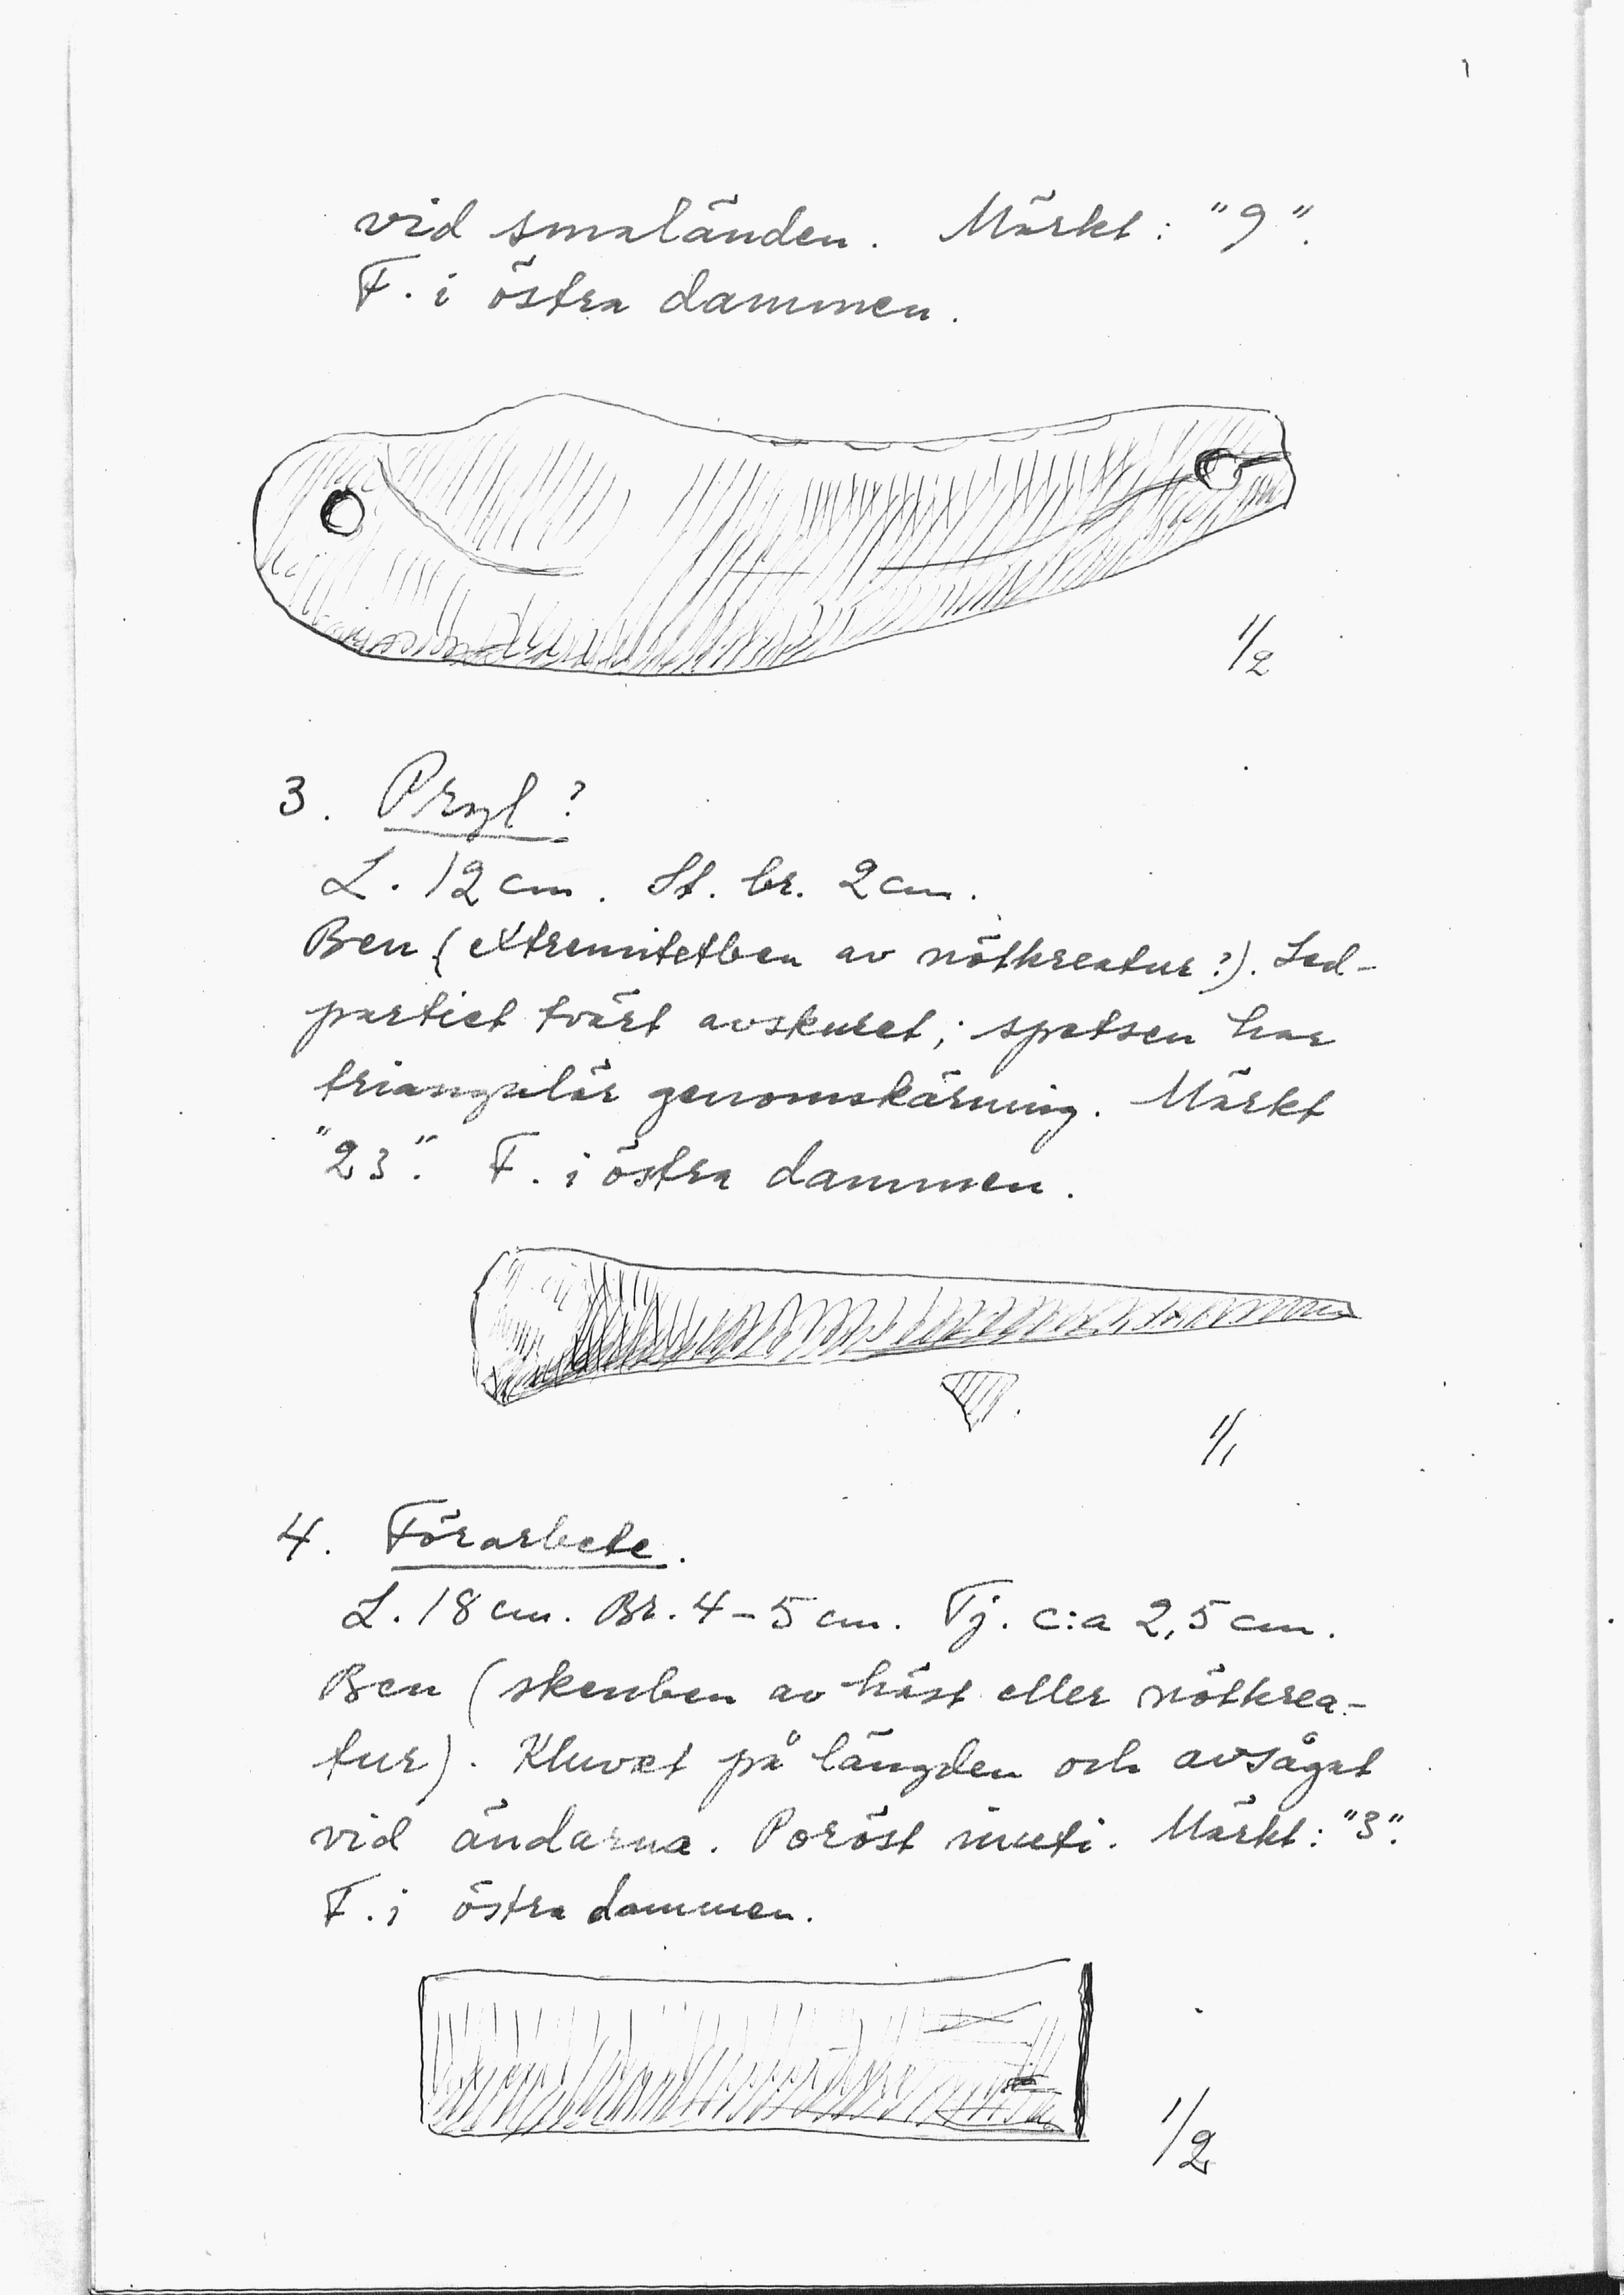 vid smaländen. Märkt: "9".
F. i östra dammen.
1/2
3. Pryl?
L. 12 cm. St. br. 2 cm.
Ben (extremitetben av nötkreatur?). Led-
partiet tvärt avskuret; spetsen har
triangulär genomskärning. Märkt
"23". F. i östra dammen.
1/1
4. Förarbete.
L. 18 cm. Br. 4-5 cm. Tj. c:a 2,5 cm.
Ben (skenben av häst eller nötkrea-
tur). Kluvet på längden och avsågat
vid ändarna. Poröst inuti. Märkt: "3".
F. i östra dammen.
1/2